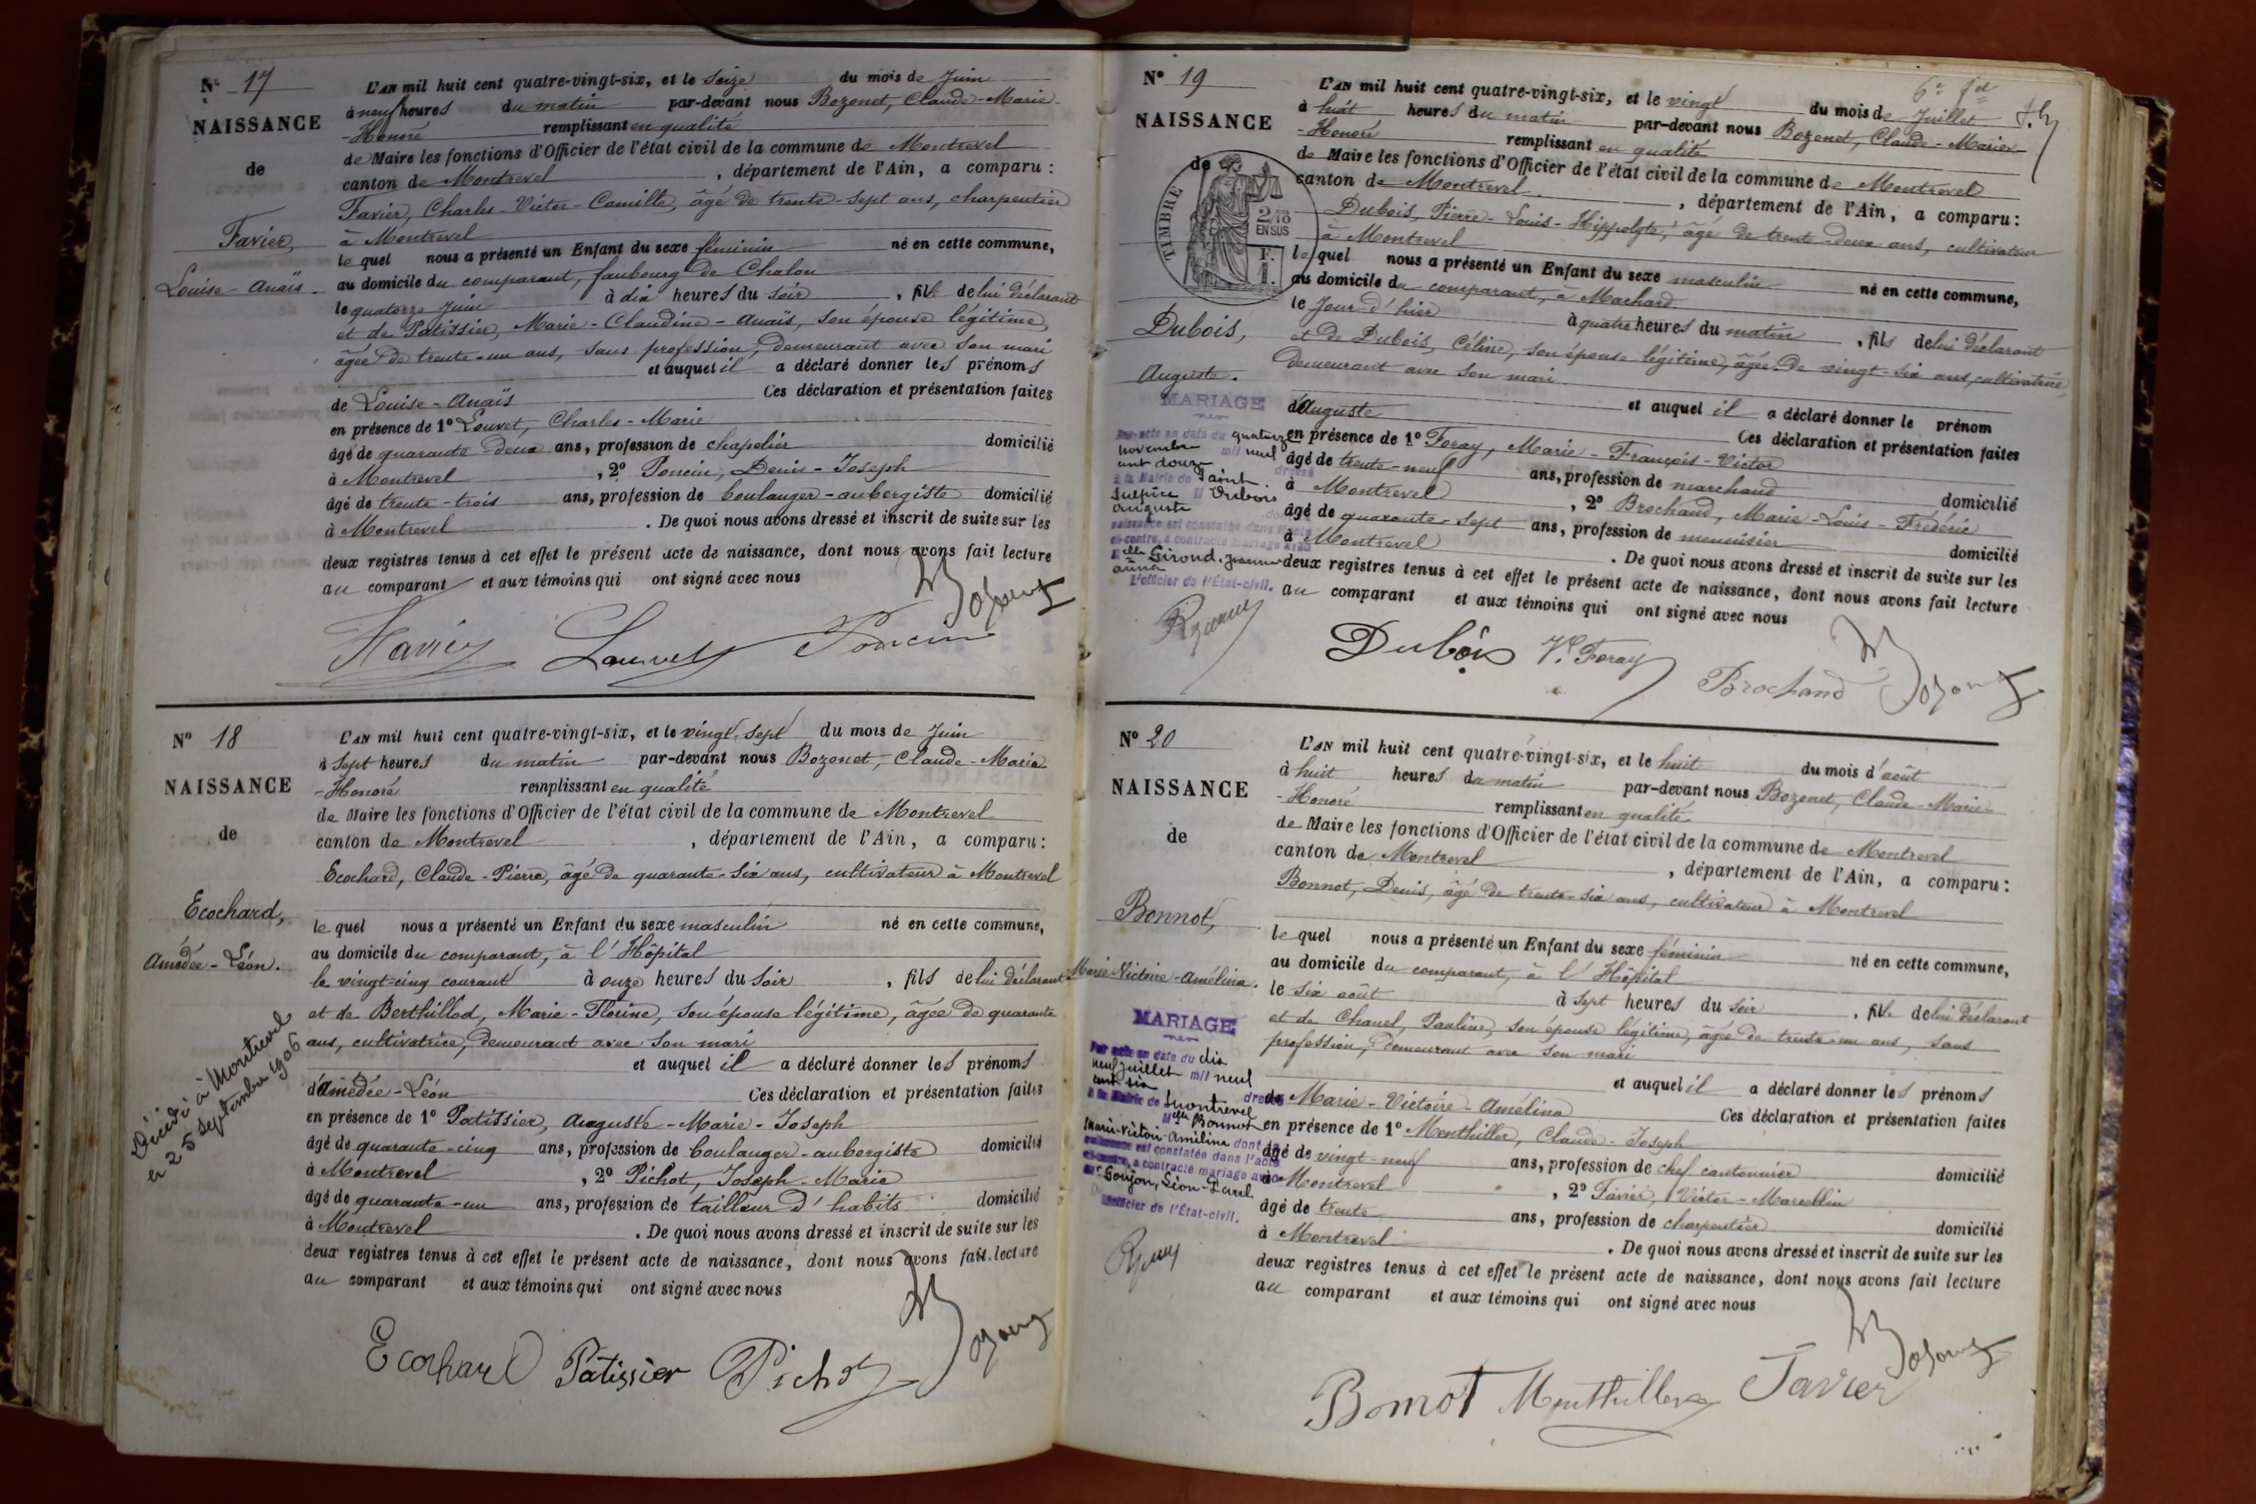 N° 17
NAISSANCE
de
Favier,
Louise-Anaïs.
L'AN mil huit cent quatre-vingt-six, et le seize du mois de Juin
à neuf heures du matin par-devant nous Bozonet, Claude-Marie-
-Honoré remplissant en qualité
de Maire les fonctions d'Officier de l'état civil de la commune de Montrevel
canton de Montrevel, département de l'Ain, a comparu:
Favier, Charles-Victor-Camille, âgé de trente-sept ans, charpentier
à Montrevel
lequel nous a présenté un Enfant du sexe féminin né en cette commune,
au domicile du comparant, faubourg de Chalon
le quatorze Juin à dix heures du soir, fille de lui déclarant
et de Patissier, Marie-Claudine-Anaïs, son épouse légitime,
âgée de trente-un ans, sans profession, demeurant avec son mari
et auquel il a déclaré donner les prénoms
de Louise-Anaïs Ces déclaration et présentation faites
en présence de 1° Louvet, Charles-Marie
âgé de quarante deux ans, profession de chapelier domicilié
à Montrevel, 2° Poncin, Denis-Joseph
âgé de trente-trois ans, profession de boulanger-aubergiste domicilié
à Montrevel. De quoi nous avons dressé et inscrit de suite sur les
deux registres tenus à cet effet le présent acte de naissance, dont nous avons fait lecture
au comparant et aux témoins qui ont signé avec nous
Favier Louvet Poncin Bozonet
N° 18
NAISSANCE
de
Ecochard,
Amédée-Léon.
Décédé à Montrevel
le 25 septembre 1906
L'AN mil huit cent quatre-vingt-six, et le vingt-sept du mois de Juin
à sept heures du matin par-devant nous Bozonet, Claude-Marie
-Honoré remplissant en qualité
de Maire les fonctions d'Officier de l'état civil de la commune de Montrevel
canton de Montrevel, département de l'Ain, a comparu:
Ecochard, Claude-Pierre, âgé de quarante-six ans, cultivateur à Montrevel
lequel nous a présenté un Enfant du sexe masculin né en cette commune,
au domicile du comparant, à l'Hôpital
le vingt-cinq courant à onze heures du soir, fils de lui déclarant
et de Berthillod, Marie-Florine, son épouse légitime, âgée de quarante
ans, cultivatrice, demeurant avec son mari
et auquel il a déclaré donner les prénoms
d'Amédée-Léon Ces déclaration et présentation faites
en présence de 1° Patissier, Auguste-Marie-Joseph
âgé de quarante-cinq ans, profession de boulanger-aubergiste domicilié
à Montrevel, 2° Pichot, Joseph-Marie
âgé de quarante-un ans, profession de tailleur d'habits domicilié
à Montrevel. De quoi nous avons dressé et inscrit de suite sur les
deux registres tenus à cet effet le présent acte de naissance, dont nous avons fait lecture
au comparant et aux témoins qui ont signé avec nous
Ecochard Patissier Pichot Bozonet
N° 19
NAISSANCE
de
TIMBRE
2/10
EN SUS
Dubois,
Auguste.
MARIAGE
Par acte en date du quatorze
novembre mil neuf
cent douze
à la Mairie de Saint
Sulpice M Dubois
Auguste
naissance est constatée dans l'acte
ci-contre, a contracté mariage avec
elle Girond, Jeanne
L'officier de l'État-civil.
L'AN mil huit cent quatre-vingt-six, et le vingt du mois de Juillet
à huit heures du matin par-devant nous Bozonet, Claude-Marie-
-Honoré remplissant en qualité
de Maire les fonctions d'Officier de l'état civil de la commune de Montrevel
canton de Montrevel, département de l'Ain, a comparu:
Dubois, Pierre-Louis-Hippolyte, âgé de trente-deux ans, cultivateur
à Montrevel
lequel nous a présenté un Enfant du sexe masculin né en cette commune,
au domicile du comparant, à Machard
le Jour d'hier à quatre heures du matin, fils de lui déclarant
et de Dubois, Céline, son épouse légitime, âgée de vingt-six ans, cultivatrice,
demeurant avec son mari
et auquel il a déclaré donner le prénom
d'Auguste Ces déclaration et présentation faites
en présence de 1° Foray, Marie-François-Victor
âgé de trente-neuf ans, profession de marchand domicilié
à Montrevel, 2° Brochand, Marie-Louis-Frédéric
âgé de quarante-sept ans, profession de menuisier domicilié
à Montrevel. De quoi nous avons dressé et inscrit de suite sur les
deux registres tenus à cet effet le présent acte de naissance, dont nous avons fait lecture
au comparant et aux témoins qui ont signé avec nous
Dubois V. Foray Brochand Bozonet
N° 20
NAISSANCE
de
Bonnot,
Marie-Victoire-Amélina.
MARIAGE
Par acte en date du dix
neuf juillet mil neuf
cent six
à la Mairie de Montrevel
Melle Bonnot
Marie-Victoire-Amélina dont la
naissance est constatée dans l'acte
ci-contre, a contracté mariage avec
Goujon, Léon-Paul
L'officier de l'État-civil.
L'AN mil huit cent quatre-vingt-six, et le huit du mois d'août
à huit heures du matin par-devant nous Bozonet, Claude-Marie-
-Honoré remplissant en qualité
de Maire les fonctions d'Officier de l'état civil de la commune de Montrevel
canton de Montrevel, département de l'Ain, a comparu:
Bonnot, Denis, âgé de trente-six ans, cultivateur à Montrevel
lequel nous a présenté un Enfant du sexe féminin né en cette commune,
au domicile du comparant, à l'Hôpital
le six août à sept heures du soir, fille de lui déclarant
et de Chanel, Pauline, son épouse légitime, âgée de trente-un ans, sans
profession, demeurant avec son mari
et auquel il a déclaré donner les prénoms
de Marie-Victoire-Amélina Ces déclaration et présentation faites
en présence de 1° Monthiller, Claude-Joseph
âgé de vingt-neuf ans, profession de chef cantonnier domicilié
à Montrevel, 2° Favier, Victor-Marcellin
âgé de trente ans, profession de charpentier domicilié
à Montrevel. De quoi nous avons dressé et inscrit de suite sur les
deux registres tenus à cet effet le présent acte de naissance, dont nous avons fait lecture
au comparant et aux témoins qui ont signé avec nous
Bonnot Monthiller Favier Bozonet